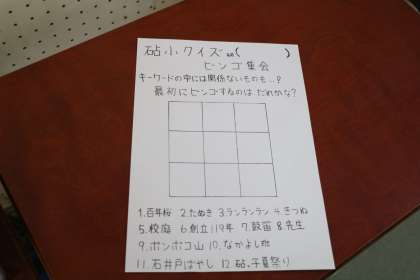 砧小クイズ ( )
ビンゴ集会
キーワードの中には関係ないものも…?
最初にビンゴするのはだれかな?
1.百年桜 2.たぬき 3.ランランラン 4.きつね
5.校庭 6.創立119年 7.鼓笛 8.先生
9.ポンポコ山 10.なかよし班
11.石井戸ばやし 12.砧、子夏祭り